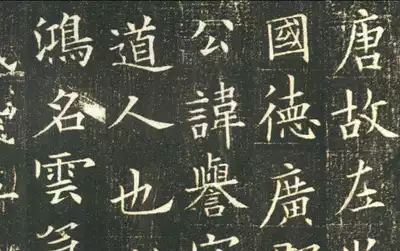 唐故左
國德廣
公諱譽
道人也
鴻名雲